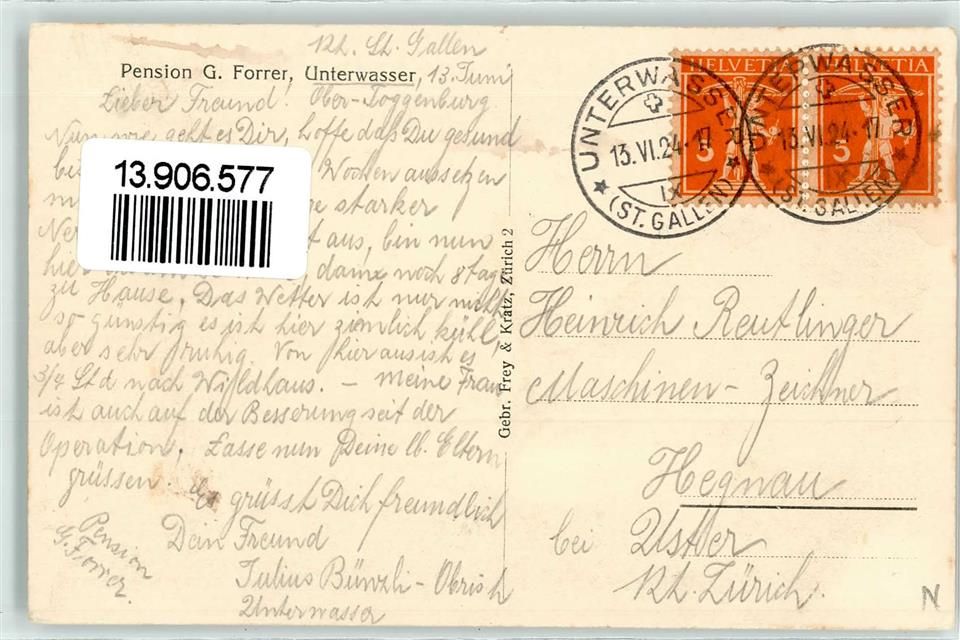 Kt. St. Gallen
Pension G. Forrer, Unterwasser, 13. Juni
Ober-Toggenburg
Lieber Freund!
Nun wie geht es Dir, hoffe daß Du gesund
Wochen aussetzen
starker
aus, bin nun
hier noch 8 Tag
zu Hause. Das Wetter ist nur nicht
so günstig es ist hier zimlich kühl
aber sehr ruhig. Von hier aus ist es
3/4 Std nach Wildhaus. – meine Frau
ist auch auf der Besserung seit der
Operation. Lasse nun Deine lb. Eltern
grüssen. Es grüsst Dich freundlich
Dein Freund
Julius Bünzli-Obrist
Unterwasser
Pension
G. Forrer.
13.906.577
Gebr. Frey & Kratz, Zürich 2
HELVETIA
5
HELVETIA
5
UNTERWASSER
13.VI.24.-17
IX
(ST. GALLEN)
UNTERWASSER
13.VI.24.-17
(ST. GALLEN)
Herrn
Heinrich Reutlinger
Maschinen-Zeichner
Hegnau
bei Uster
Kt. Zürich
N